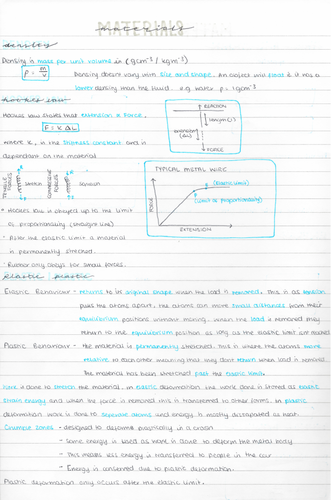 MATERIALS
materials
density
Density is mass per unit volume in (gcm⁻³ / kgm⁻³)
ρ = m/v
Density doesnt vary with size and shape. An object will float if it has a
lower density than the fluid. e.g water ρ = 1gcm⁻³
hookes law
Hookes law states that extension ∝ Force.
F = k ΔL
where k, is the stiffness constant and is
dependant on the material
REACTION
length (L)
extension (ΔL)
FORCE
TENSILE FORCES
stretch
COMPRESSIVE FORCES
squash
TYPICAL METAL WIRE
FORCE
(elastic limit)
(limit of proportionality)
EXTENSION
- Hookes law is obeyed up to the limit
of proportionality (straight line)
- After the elastic limit a material
is permanently stretched.
- Rubber only obeys for small forces.
elastic plastic
Elastic Behaviour - returns to its original shape when the load is removed. This is as tension
pulls the atoms apart. The atoms can move small distances from their
equilibrium positions without moving. When the load is removed they
return to the equilibrium position as long as the elastic limit isnt reached
Plastic Behaviour - the material is permanently stretched. This is where the atoms move
relative to each other meaning that they dont return when load is removed.
The material has been stretched past the elastic limit.
Work is done to stretch the material. In elastic deformation the work done is stored as elastic
strain energy and when the force is removed this is transferred to other forms. In plastic
deformation work is done to seperate atoms and energy is mostly dissipated as heat.
Crumple zones - designed to deform plastically in a crash
- Some energy is used as work is done to deform the metal body
- This means less energy is transferred to people in the car
- Energy is conserved due to plastic deformation.
Plastic deformation only occurs after the elastic limit.